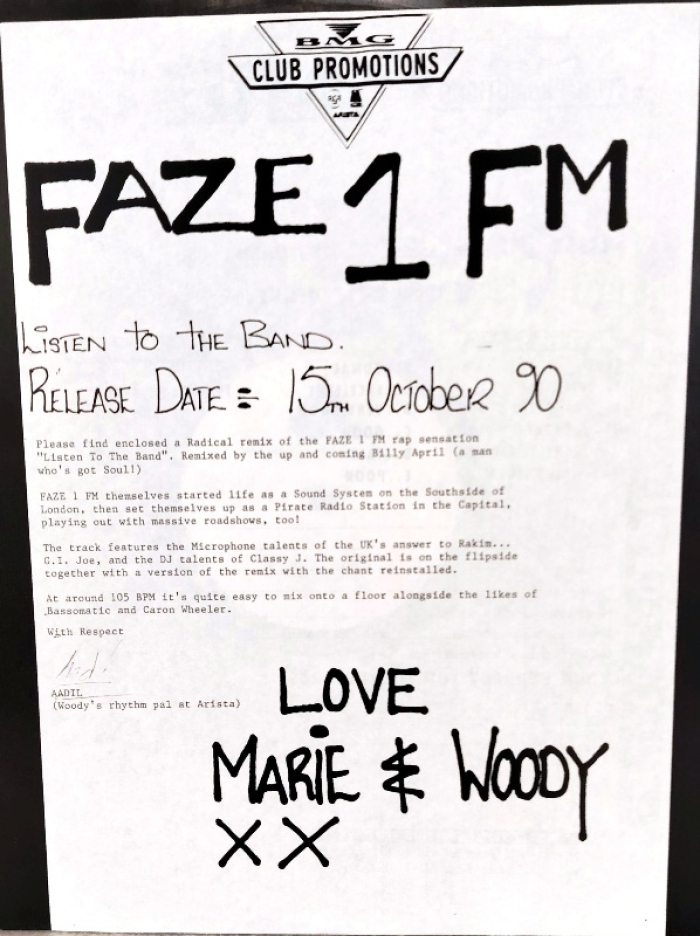 BMG
CLUB PROMOTIONS
RCA
ARISTA
FAZE 1 FM
LISTEN TO THE BAND.
RELEASE DATE = 15TH OCTOBER 90
Please find enclosed a Radical remix of the FAZE 1 FM rap sensation
"Listen To The Band". Remixed by the up and coming Billy April (a man
who's got Soul!)
FAZE 1 FM themselves started life as a Sound System on the Southside of
London, then set themselves up as a Pirate Radio Station in the Capital,
playing out with massive roadshows, too!
The track features the Microphone talents of the UK's answer to Rakim...
G.I. Joe, and the DJ talents of Classy J. The original is on the flipside
together with a version of the remix with the chant reinstalled.
At around 105 BPM it's quite easy to mix onto a floor alongside the likes of
Bassomatic and Caron Wheeler.
With Respect
AADIL
(Woody's rhythm pal at Arista)
LOVE
MARIE & WOODY
XX